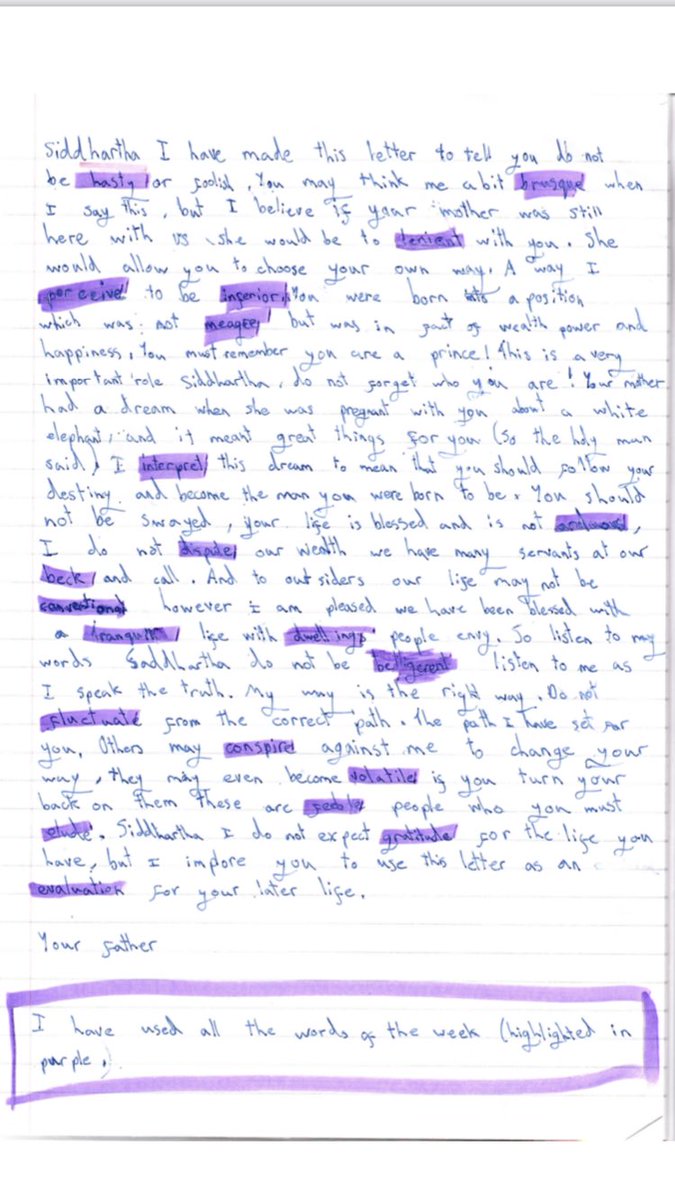 Siddhartha I have made this letter to tell you do not
be hasty or foolish, You may think me a bit brusque when
I say this, but I believe if your mother was still
here with us she would be to lenient with you. She
would allow you to choose your own way. A way I
perceive to be inferior. You were born into a position
which was not meager but was in fact of wealth power and
happiness. You must remember you are a prince! This is a very
important role Siddhartha, do not forget who you are! Your mother
had a dream when she was pregnant with you about a white
elephant, and it meant great things for you (so the holy man
said) I interpret this dream to mean that you should follow your
destiny and become the man you were born to be. You should
not be swayed, your life is blessed and is not
I do not dispute our wealth we have many servants at our
beck and call. And to outsiders our life may not be
conventional however I am pleased we have been blessed with
a tranquil life with dwellings people envy. So listen to my
words Saddhartha do not be belligerent listen to me as
I speak the truth. My way is the right way. Do not
fluctuate from the correct path. The path I have set for
you. Others may conspire against me to change your
way, they may even become volatile if you turn your
back on them these are feeble people who you must
elude. Siddhartha I do not expect gratitude for the life you
have, but I impore you to use this letter as an
evaluation for your later life.
Your father
I have used all the words of the week (highlighted in
purple.)